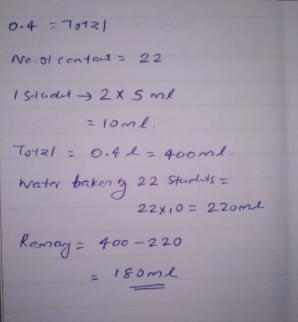 0.4 = Total
No. of contant = 22
1 Student → 2 x 5 ml
= 10 ml.
Total = 0.4 l = 400 ml.
Water taken by 22 Students =
22x10 = 220ml
= 400 - 220
= 180ml